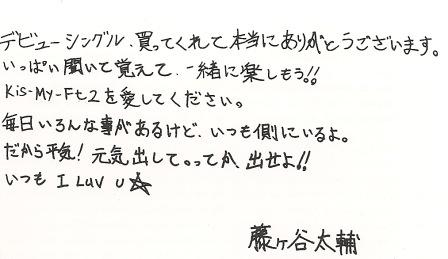 デビューシングル、買ってくれて本当にありがとうございます。
いっぱい聞いて覚えて、一緒に楽しもう!!
Kis-My-Ft2を愛してください。
毎日いろんな事があるけど、いつも側にいるよ。
だから平気!元気出して。ってか、出せよ!!
いつも I LUV U☆
藤ヶ谷太輔